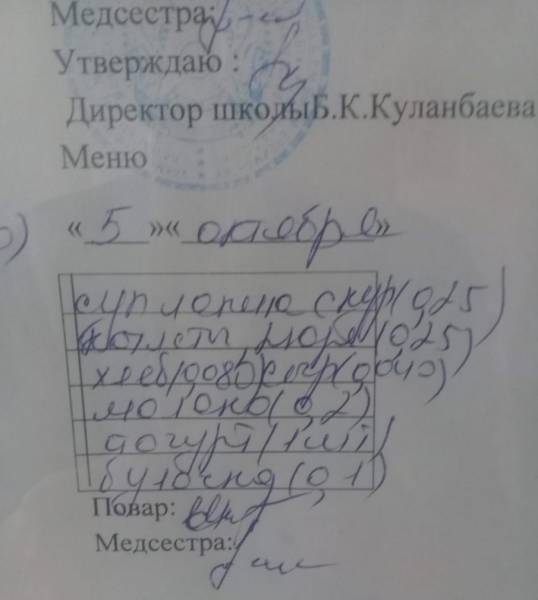 Медсестра:
Утверждаю :
Директор школыБ.К.Куланбаева
Меню
«5»«октября»
суп лапша с кур(0,25)
котлеты (0,25)
хлеб(0,080) (0,040)
молоко(0,2)
йогурт(1шт)
(0,1)
Повар:
Медсестра: